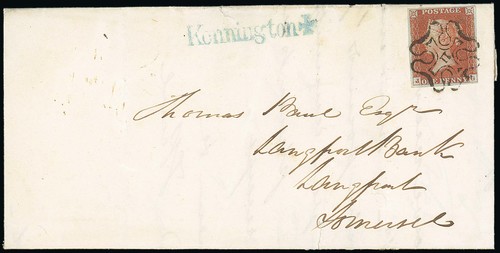 Kennington
POSTAGE
Thomas Paul Esqr
Langport Bank
Langport
Somerset